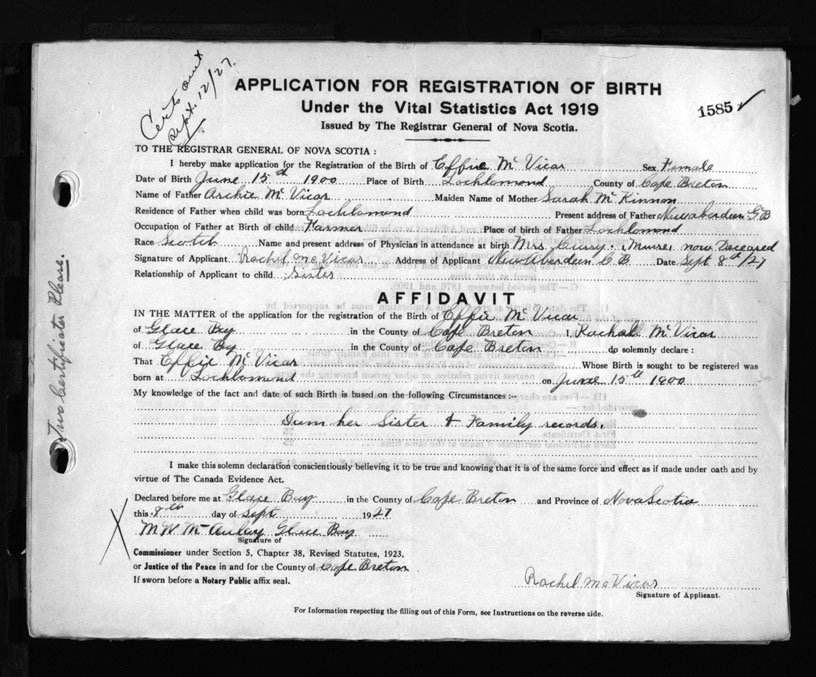 Cert out
Sept. 12/27.
APPLICATION FOR REGISTRATION OF BIRTH
Under the Vital Statistics Act 1919
1585
Issued by The Registrar General of Nova Scotia.
TO THE REGISTRAR GENERAL OF NOVA SCOTIA :
I hereby make application for the Registration of the Birth of Effie McVicar Sex Female
Date of Birth June 15th 1900 Place of Birth Lochlomond County of Cape Breton
Name of Father Archie McVicar Maiden Name of Mother Sarah McKinnon
Residence of Father when child was born Lochlomond Present address of Father New aberdeen G.B
Occupation of Father at Birth of child Farmer Place of birth of Father Lochlomond
Race Scotch Name and present address of Physician in attendance at birth Mrs now Deceased
Signature of Applicant Rachel McVicar Address of Applicant New Aberdeen C.B. Date Sept 8th/27
Relationship of Applicant to child Sister
AFFIDAVIT
IN THE MATTER of the application for the registration of the Birth of Effie McVicar
of Glace By in the County of Cape Breton I, Rachal McVicar
of Glace By in the County of Cape Breton do solemnly declare :
That Effie McVicar Whose Birth is sought to be registered was
born at Lochlomond on June 15th 1900
My knowledge of the fact and date of such Birth is based on the following Circumstances :-
I um her Sister & Family records.
I make this solemn declaration conscientiously believing it to be true and knowing that it is of the same force and effect as if made under oath and by
virtue of The Canada Evidence Act.
Declared before me at Glace Bay in the County of Cape Breton and Province of Nova Scotia
this 8th day of Sept 1927
McAulay Glace Bay
Signature of
Commissioner under Section 5, Chapter 38, Revised Statutes, 1923.
or Justice of the Peace in and for the County of Cape Breton
If sworn before a Notary Public affix seal.
Rachel McVicar
Signature of Applicant.
For Information respecting the filling out of this Form, see Instructions on the reverse side.
Two Certificates Please.